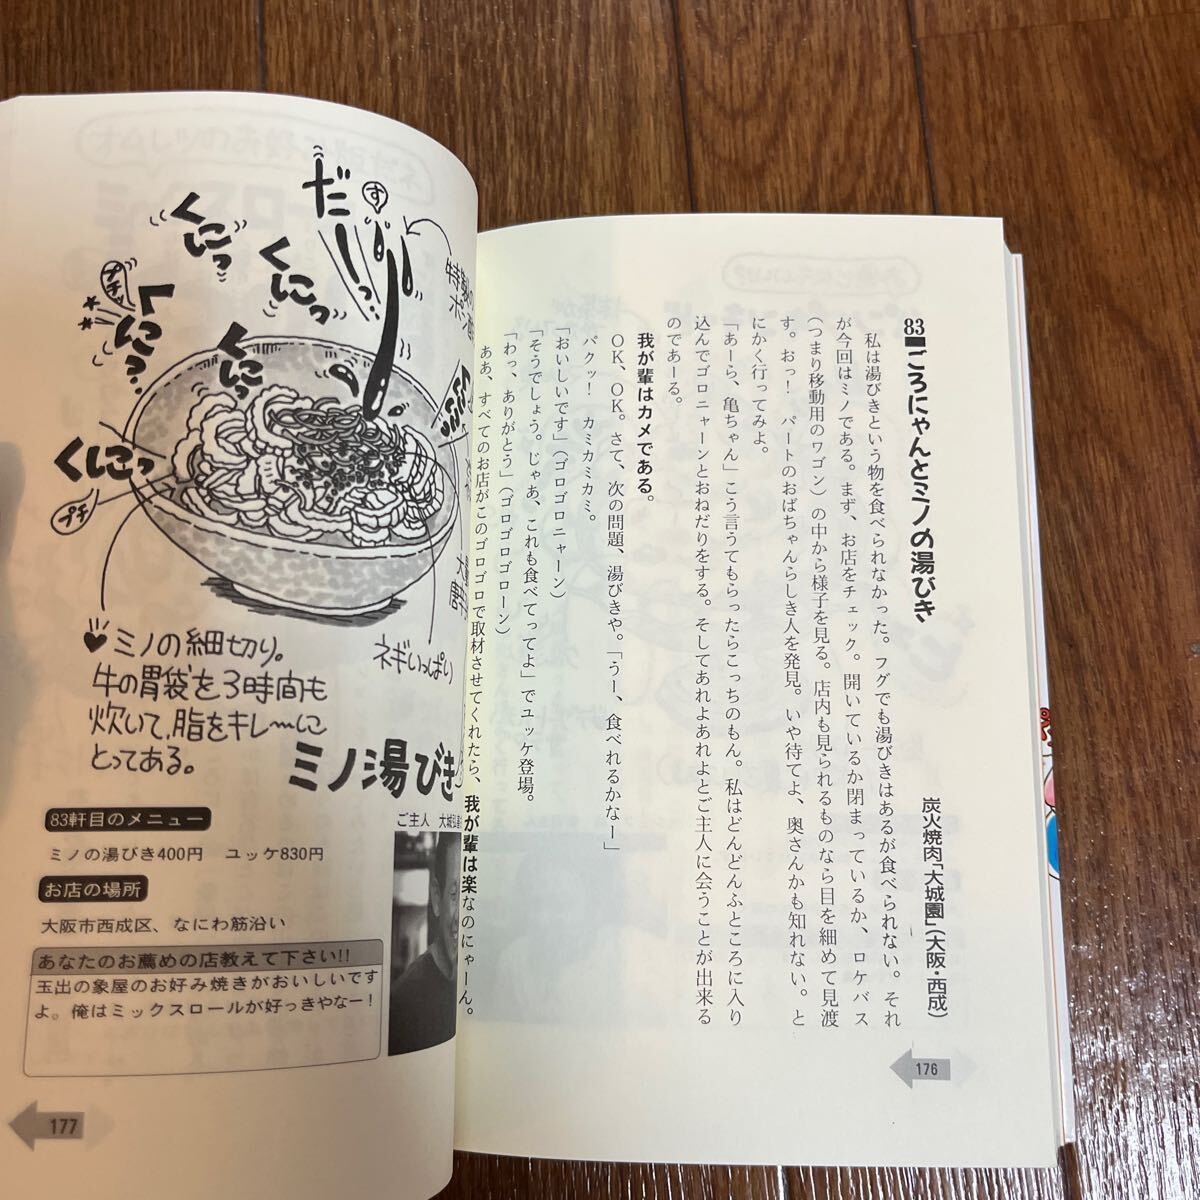 83■ごろにゃんとミノの湯びき
炭火焼肉「大城園」(大阪・西成)
私は湯びきという物を食べられなかった。フグでも湯びきはあるが食べられない。それ
が今回はミノである。まず、お店をチェック。開いているか閉まっているか、ロケバス
(つまり移動用のワゴン)の中から様子を見る。店内も見られるものなら目を細めて見渡
す。おっ! パートのおばちゃんらしき人を発見。いや待てよ、奥さんかも知れない。と
にかく行ってみよ。
「あーら、亀ちゃん」こう言うてもらったらこっちのもん。私はどんどんふところに入り
込んでゴロニャーンとおねだりをする。そしてあれよあれよとご主人に会うことが出来る
のであーる。
我が輩はカメである。
OK、OK。さて、次の問題、湯びきや。「うー、食べれるかなー」
パクッ! カミカミカミ。
「おいしいです」(ゴロゴロニャーン)
「そうでしょう。じゃあ、これも食べてってよ」でユッケ登場。
「わっ、ありがとう」(ゴロゴロゴローン)
ああ、すべてのお店がこのゴロゴロで取材させてくれたら、我が輩は楽なのにゃーん。
176
だーっ
す
くにっ
くにこっ
くにっ
くにっ
プチ
ネギいっぱい
ミノの細切り。
牛の胃袋を3時間も
炊いて、脂をキレ〜に
とってある。
ミノ湯びき
83軒目のメニュー
ミノの湯びき400円 ユッケ830円
お店の場所
大阪市西成区、なにわ筋沿い
ご主人 大城
あなたのお薦めの店教えて下さい!!
玉出の象屋のお好み焼きがおいしいです
よ。俺はミックスロールが好っきやなー!
177